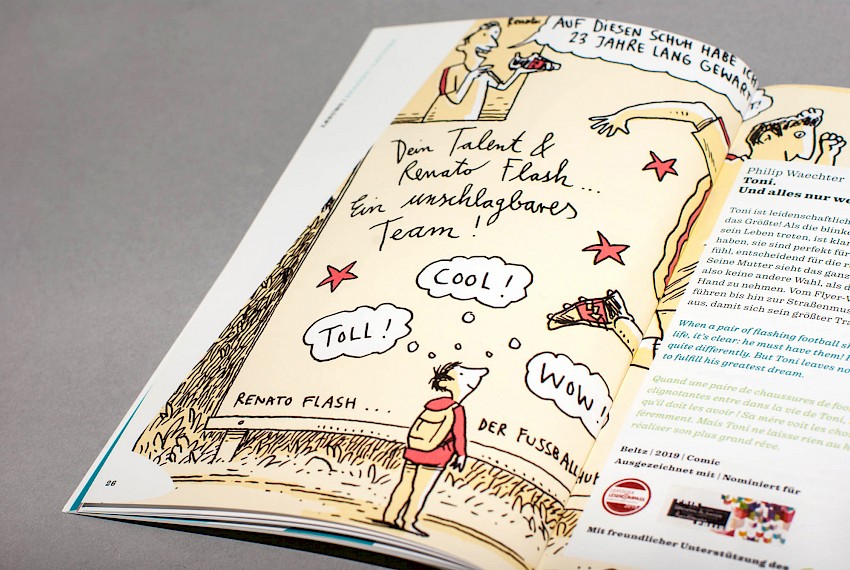 Renato
AUF DIESEN SCHUH HABE ICH
23 JAHRE LANG GEWARTET!
Dein Talent &
Renato Flash...
Ein unschlagbares
Team!
COOL!
TOLL!
WOW!
RENATO FLASH ...
DER FUSSBALLSCHUH
26
Philip Waechter
Toni.
Und alles nur we
Toni ist leidenschaftlich
das Größte! Als die blinke
sein Leben treten, ist klar
haben, sie sind perfekt für
fühl, entscheidend für die r
Seine Mutter sieht das ganz
also keine andere Wahl, als d
Hand zu nehmen. Vom Flyer-V
führen bis hin zur Straßenmus
aus, damit sich sein größter Tra
When a pair of flashing football sh
life, it's clear: he must have them! H
quite differently. But Toni leaves no
to fulfill his greatest dream.
Quand une paire de chaussures de foo
clignotantes entre dans la vie de Toni,
qu'il doit les avoir ! Sa mère voit les cho
féremment. Mais Toni ne laisse rien au h
réaliser son plus grand rêve.
Beltz | 2019 | Comic
Ausgezeichnet mit | Nominiert für
LESEKOMPASS
Mit freundlicher Unterstützung des